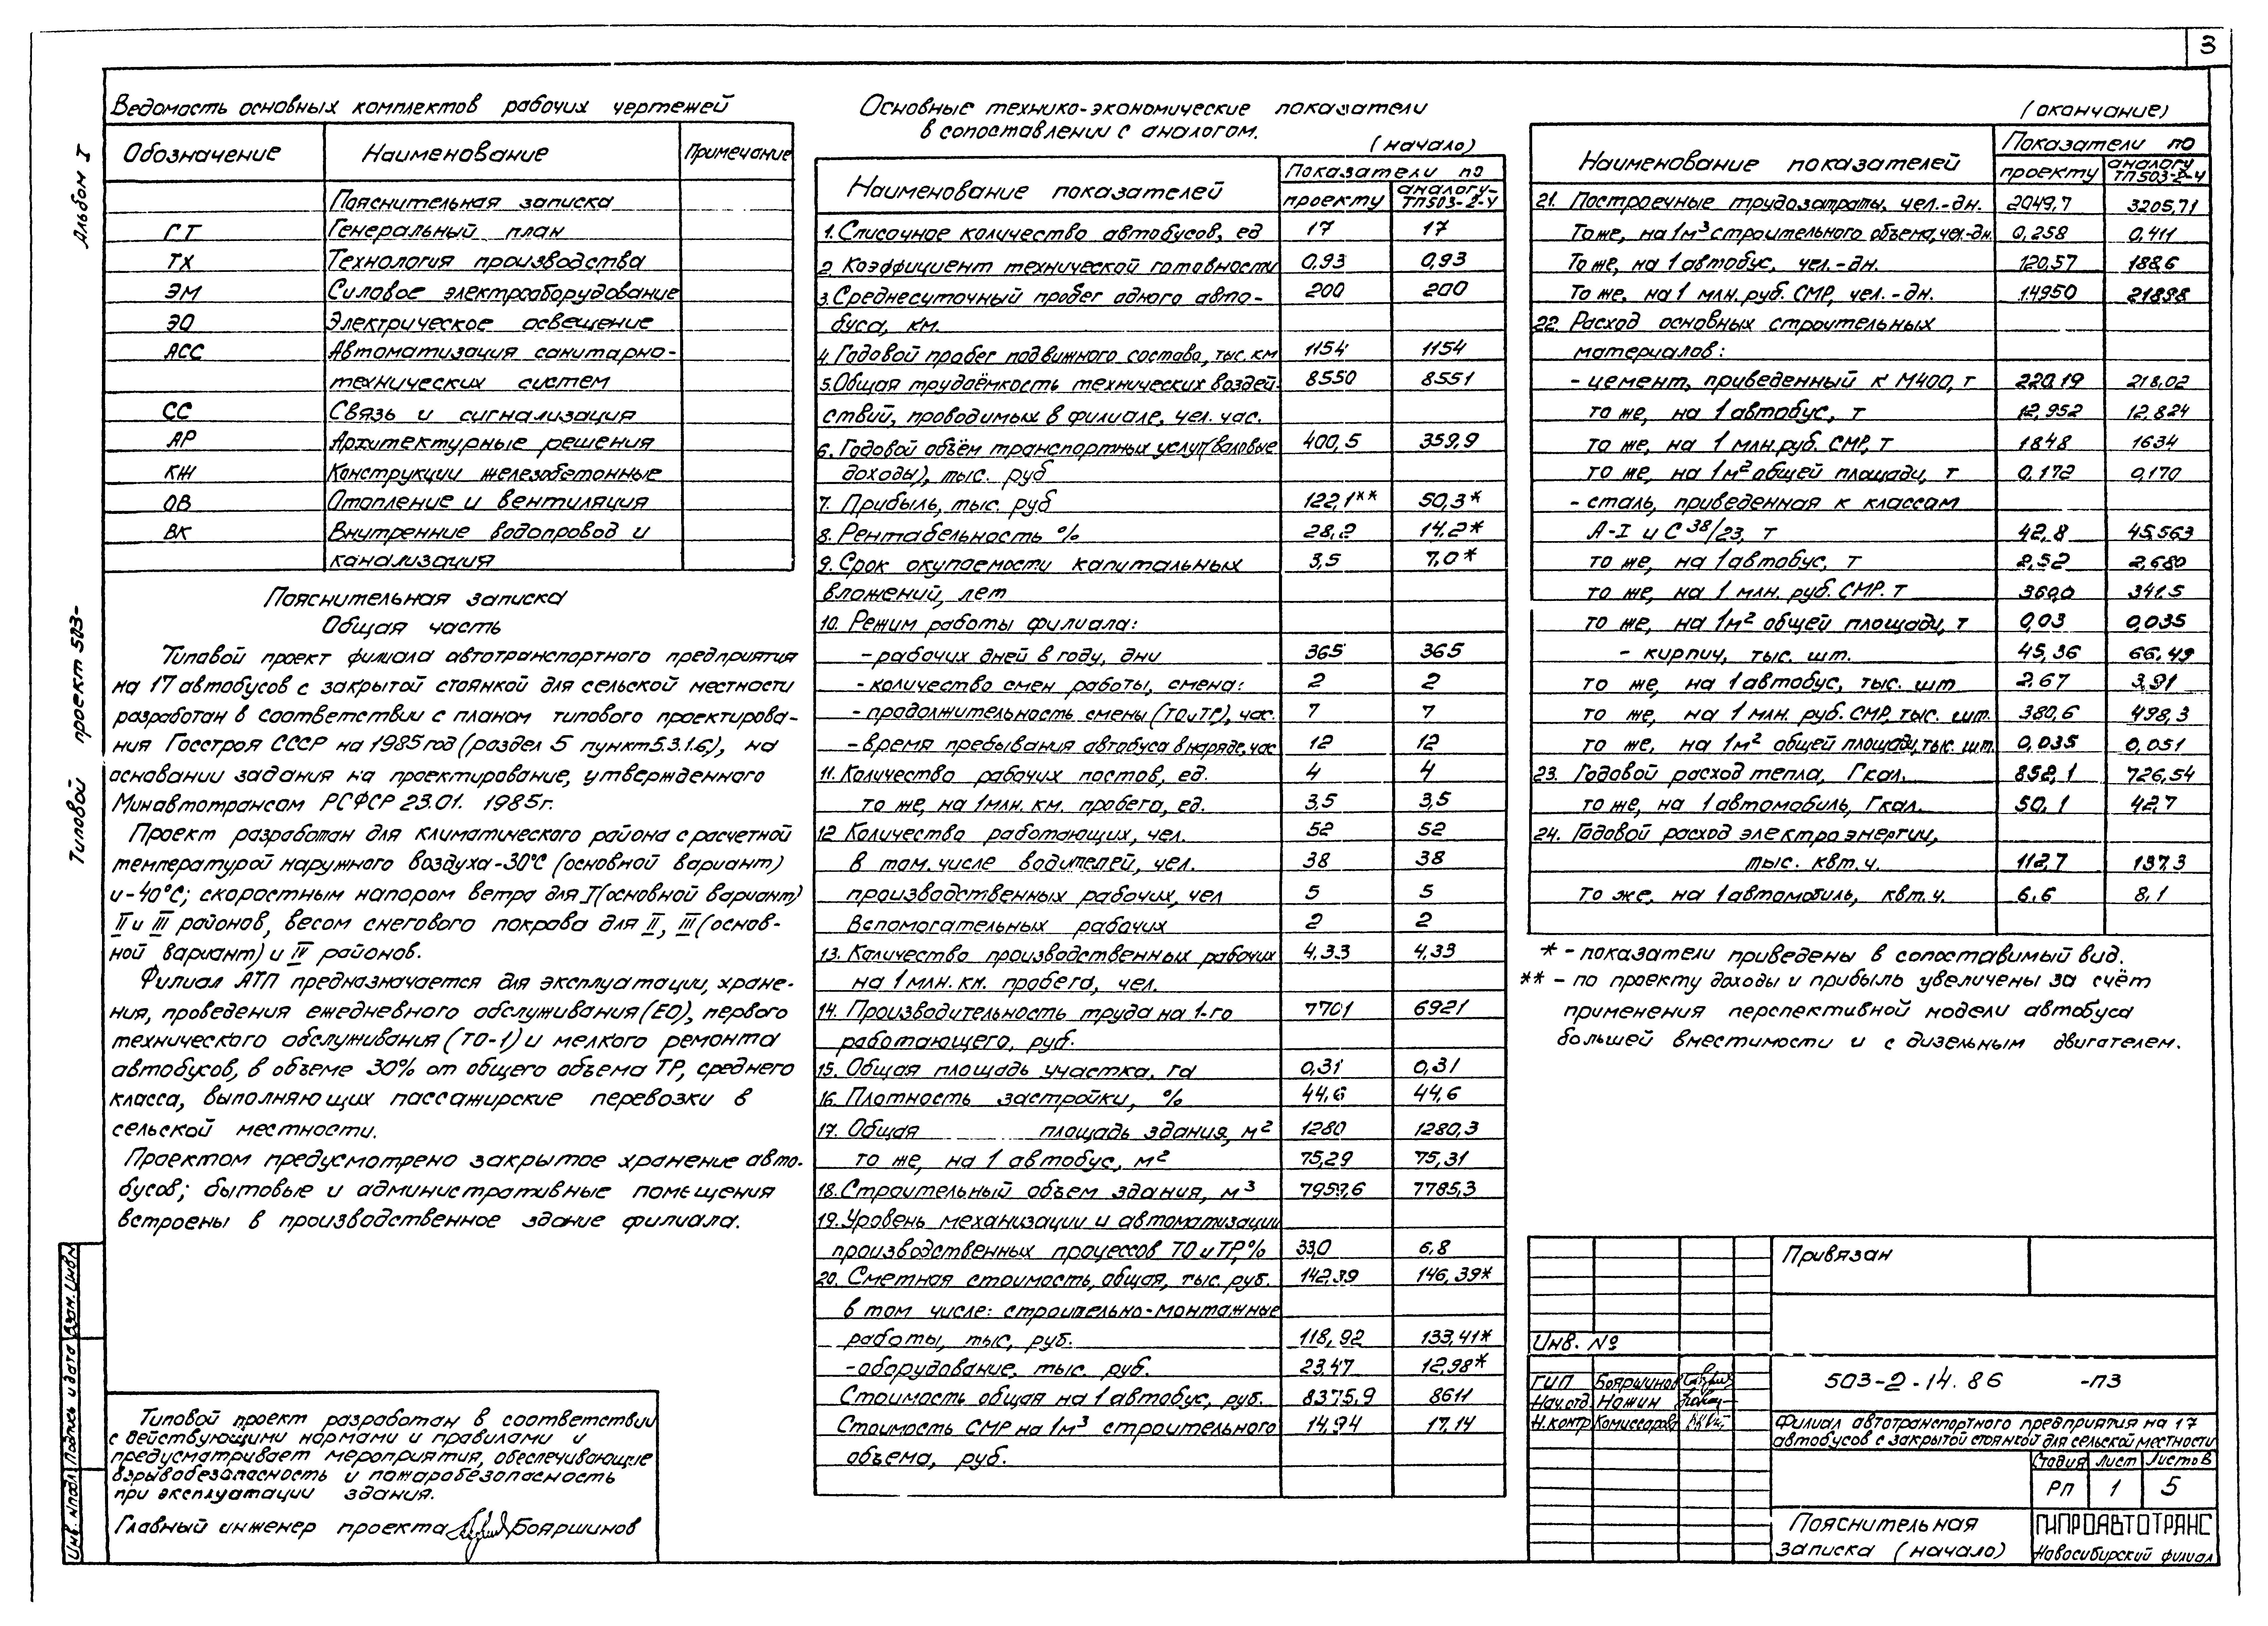 3
Альбом I
Типовой проект 503-
Ведомость основных комплектов рабочих чертежей
Обозначение Наименование Примечание
Пояснительная записка
ГТ Генеральный план
ТХ Технология производства
ЭМ Силовое электрооборудование
ЭО Электрическое освещение
АСС Автоматизация санитарно-
технических систем
СС Связь и сигнализация
АР Архитектурные решения
КЖ Конструкции железобетонные
ОВ Отопление и вентиляция
ВК Внутренние водопровод и
канализация
Пояснительная записка
Общая часть
Типовой проект филиала автотранспортного предприятия
на 17 автобусов с закрытой стоянкой для сельской местности
разработан в соответствии с планом типового проектирова-
ния Госстроя СССР на 1985 год (раздел 5 пункт 5.3.1.6), на
основании задания на проектирование, утвержденного
Минавтотрансом РСФСР 23.01. 1985г.
Проект разработан для климатического района с расчетной
температурой наружного воздуха -30°С (основной вариант)
и -40°С; скоростным напором ветра для I (основной вариант)
II и III районов, весом снегового покрова для II, III (основ-
ной вариант) и IV районов.
Филиал АТП предназначается для эксплуатации, хране-
ния, проведения ежедневного обслуживания (ЕО), первого
технического обслуживания (ТО-1) и мелкого ремонта
автобусов, в объеме 30% от общего объема ТР, среднего
класса, выполняющих пассажирские перевозки в
сельской местности.
Проектом предусмотрено закрытое хранение авто-
бусов; бытовые и административные помещения
встроены в производственное здание филиала.
Типовой проект разработан в соответствии
с действующими нормами и правилами и
предусматривает мероприятия, обеспечивающие
взрывобезопасность и пожаробезопасность
при эксплуатации здания.
Главный инженер проекта Бояршинов
Инв. № подл. Подпись и дата Взам. Инв. №
Основные технико-экономические показатели
в сопоставлении с аналогом.
(начало)
Наименование показателей Показатели по
проекту аналогу- ТП503-2-4
1. Списочное количество автобусов, ед 17 17
2. Коэффициент технической готовности 0,93 0,93
3. Среднесуточный пробег одного авто- 200 200
буса, км.
4. Годовой пробег подвижного состава, тыс. км 1154 1154
5. Общая трудоёмкость технических воздей- 8550 8551
ствий, проводимых в филиале, чел. час.
6. Годовой объём транспортных услуг (валовые 400,5 359,9
доходы), тыс. руб
7. Прибыль, тыс. руб 122,1** 50,3*
8. Рентабельность % 28,2 14,2*
9. Срок окупаемости капитальных 3,5 7,0*
вложений, лет
10. Режим работы филиала:
- рабочих дней в году, дни 365 365
- количество смен работы, смена: 2 2
- продолжительность смены (ТО и ТР), час. 7 7
- время пребывания автобуса в наряде, час 12 12
11. Количество рабочих постов, ед. 4 4
то же, на 1 млн. км. пробега, ед. 3,5 3,5
12 Количество работающих, чел. 52 52
в том. числе водителей, чел. 38 38
производственных рабочих, чел 5 5
Вспомогательных рабочих 2 2
13. Количество производственных рабочих 4,33 4,33
на 1 млн. км. пробега, чел.
14. Производительность труда на 1-го 7701 6921
работающего, руб.
15. Общая площадь участка, га 0,31 0,31
16. Плотность застройки, % 44,6 44,6
17. Общая площадь здания, м² 1280 1280,3
то же, на 1 автобус, м² 75,29 75,31
18. Строительный объем здания, м³ 7959,6 7785,3
19. Уровень механизации и автоматизации
производственных процессов ТО и ТР, % 33,0 6,8
20. Сметная стоимость, общая, тыс. руб. 142,39 146,39*
в том числе: строительно-монтажные
работы, тыс, руб. 118,92 133,41*
- оборудование, тыс. руб. 23,47 12,98*
Стоимость общая на 1 автобус, руб. 8375,9 8611
Стоимость СМР на 1м³ строительного 14,94 17,14
объема, руб.
(окончание)
Наименование показателей Показатели по
проекту аналогу ТП503-2-4
21. Построечные трудозатраты, чел.-дн. 2049,7 3205,71
То же, на 1м³ строительного объема, чел-дн. 0,258 0,411
То же, на 1 автобус, чел.-дн. 120,57 188,6
То же, на 1 млн. руб. СМР, чел.-дн. 14950 21898
22. Расход основных строительных
материалов:
- цемент, приведенный к М400, т 220,19 218,02
то же, на 1 автобус, т 12,952 12,824
то же, на 1 млн. руб. СМР, т 1848 1634
то же, на 1м² общей площади, т 0,172 0,170
- сталь, приведенная к классам
А-I и С 38/23, т 42,8 45,563
то же, на 1 автобус, т 2,52 2,680
то же, на 1 млн. руб. СМР. т 360,0 341,5
то же, на 1м² общей площади, т 0,03 0,035
- кирпич, тыс. шт. 45,36 66,49
то же, на 1 автобус, тыс. шт 2,67 3,91
то же, на 1 млн. руб. СМР, тыс. шт. 380,6 498,3
то же, на 1м² общей площади, тыс. шт. 0,035 0,051
23. Годовой расход тепла, Гкал. 852,1 726,54
то же, на 1 автомобиль, Гкал. 50,1 42,7
24. Годовой расход электроэнергии,
тыс. квт.ч. 112,7 137,3
то же, на 1 автомобиль, квт.ч. 6,6 8,1
* - показатели приведены в сопоставимый вид.
** - по проекту доходы и прибыль увеличены за счёт
применения перспективной модели автобуса
большей вместимости и с дизельным двигателем.
Привязан
Инв. №
ГИП Бояршинов
Нач.отд Ножин
Н.контр Комиссарова
503-2-14.86 -ПЗ
Филиал автотранспортного предприятия на 17
автобусов с закрытой стоянкой для сельской местности
Стадия Лист Листов
РП 1 5
Пояснительная
записка (начало)
ГИПРОАВТОТРАНС
Новосибирский филиал